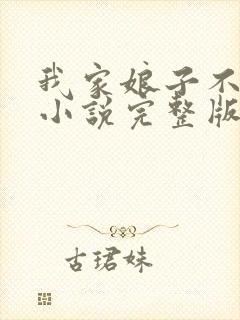 我家娘子不
小说完整版
古珺妹